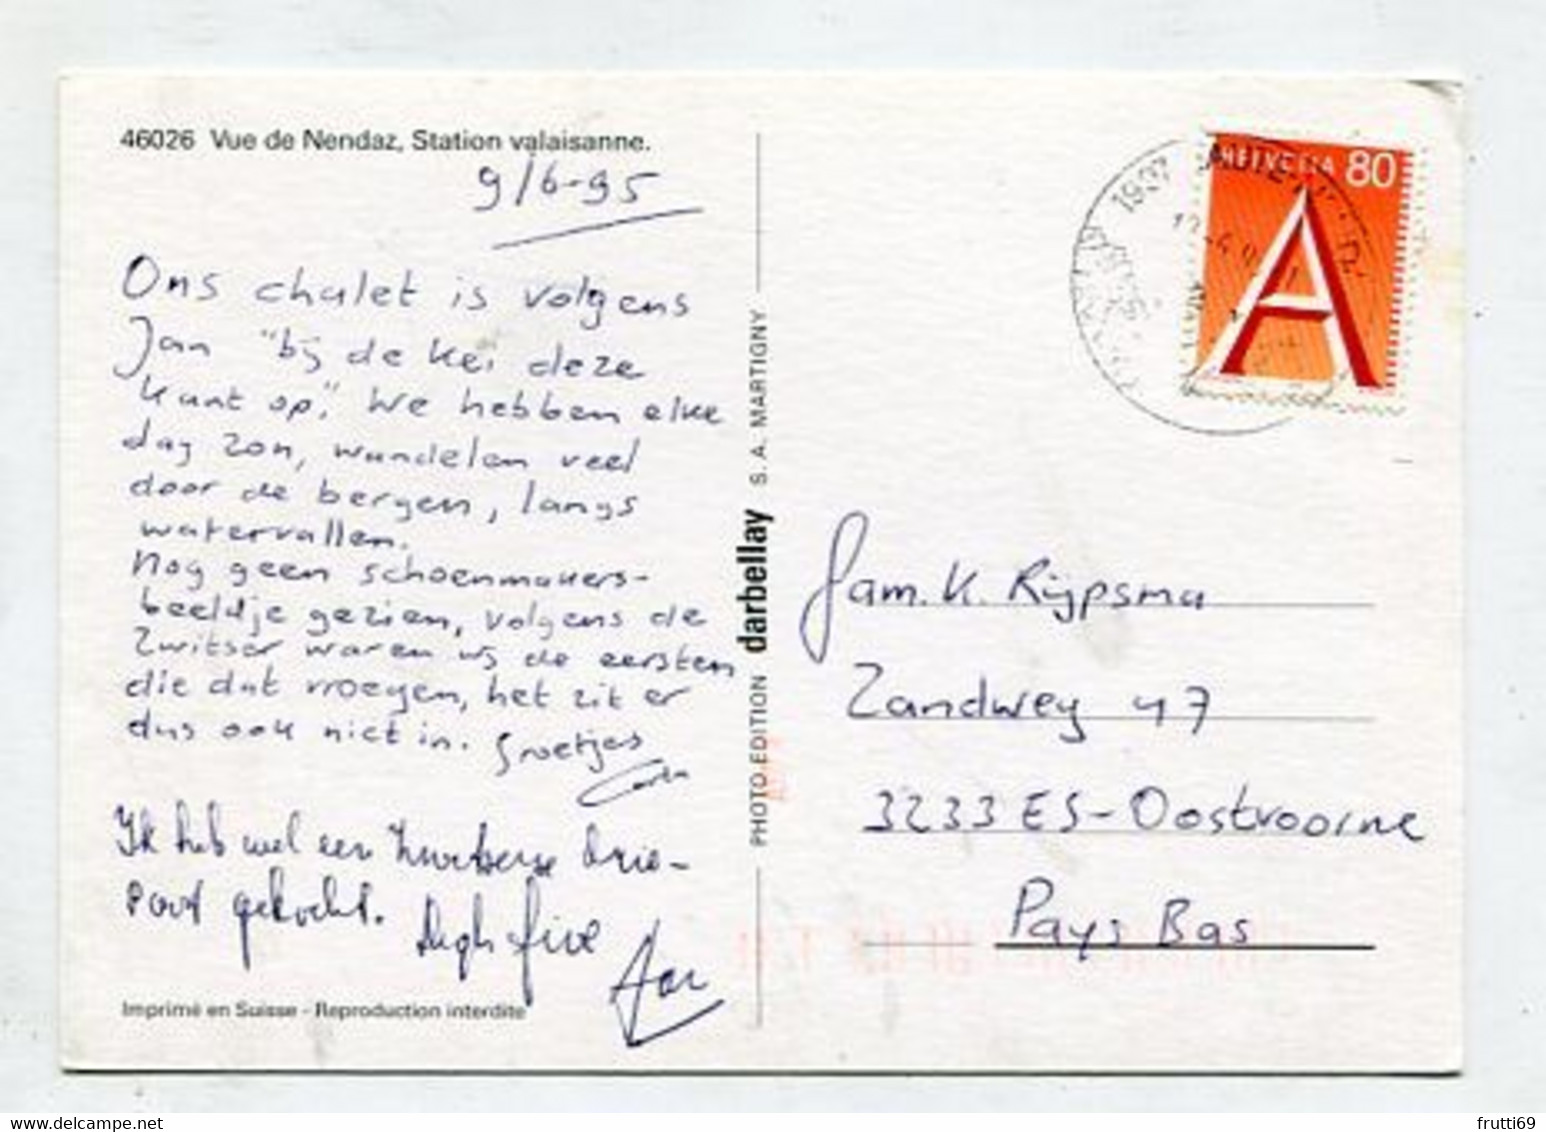 46026 Vue de Nendaz, Station valaisanne.
9/6-95
Ons chalet is volgens
Jan "bij de kei deze
kant op". We hebben elke
dag zon, wandelen veel
door de bergen, langs
watervallen.
Nog geen schoenmakers-
beeldje gezien, volgens de
Zwitser waren wij de eersten
die dat vroegen, het zit er
dus ook niet in. Groetjes
Carla
Ik heb wel een Zwitserse drie-
poot gekocht.
High five
Jan
Imprimé en Suisse - Reproduction interdite
PHOTO EDITION darbellay S. A. MARTIGNY
HELVETIA 80
A
1997
Fam. K. Rijpsma
Zandweg 47
3233 ES-Oostvoorne
Pays Bas
frutti69